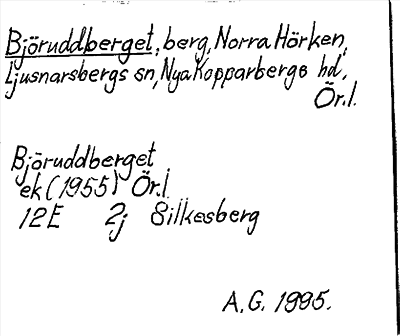 Björuddberget, berg, Norra Hörken,
Ljusnarsbergs sn, Nya Kopparbergs hd,
Ör.l.
Björuddberget
ek (1955) Ör.l.
12E 2j Silkesberg
A.G. 1995.